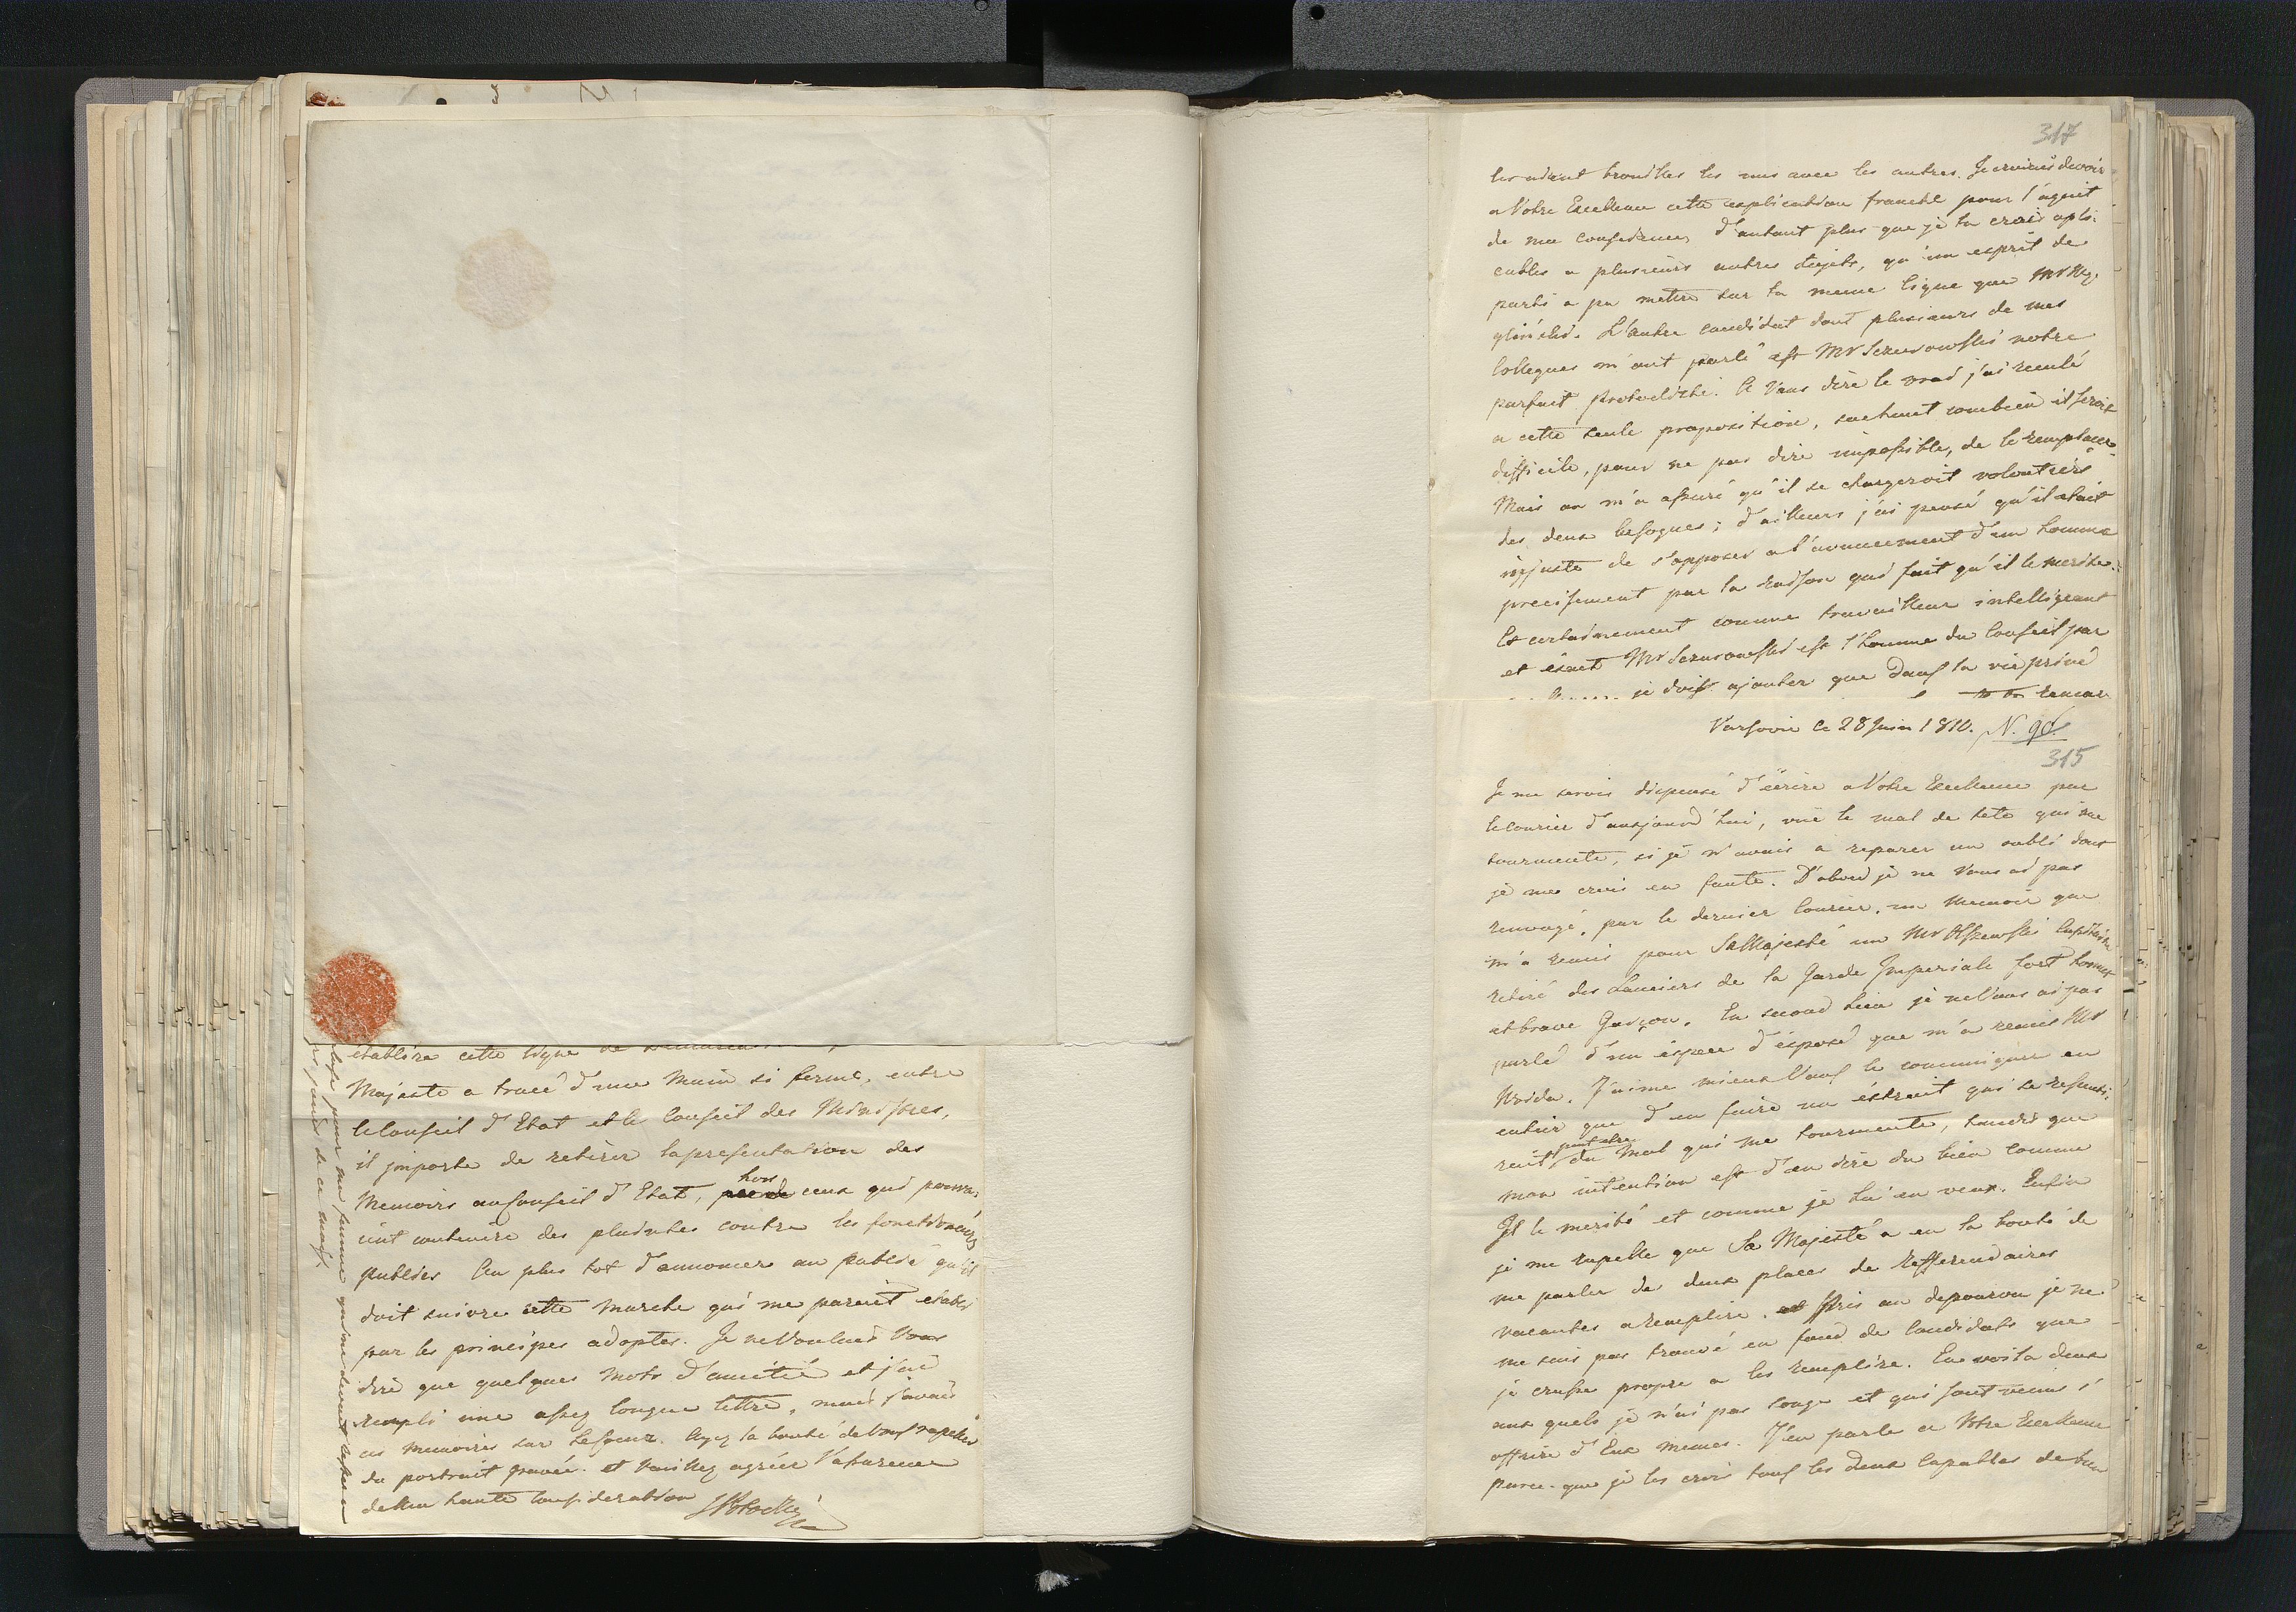 établira cette ligne de
Majesté a tracé d'une main si ferme, entre
le Conseil d'Etat et le Conseil des Ministres,
il jmporte de retirer la presentation des
Memoirs au Conseil d'Etat, hors ceux qui pourrai-
ent contenire des plaintes contre les fonctionaires
publics
doit suivre cette marche qui me parait etablie
par les principes adoptés. Je ne voulais Vous
dire que quelques mots d'amitié et j'ai
rempli une assez longue lettre, mais j'avais
ces memoires sur le coeur. Ayez la bonté de Vous rapeller
du portrait gravée. et Veuillez agréer l'assurance
de Ma haute Consideration
SPotocki
317
les autres. Je croirais devoir
a Votre Excellence cette explication franche pour l'aquit
de ma conscience, d'autant plus que je la crois apli-
cable a plusieurs autres sujets, qu'un esprit de
parti a pu mettre sur la meme ligne que Mr
L'autre candidat dont plusieurs de mes
Collegues m'ont parlé est Mr notre
parfait A Vous dire le vrai j'ai reculé
a cette seule proposition, sachant combien il seroit
difficile, pour ne pas dire impossible, de le remplacer.
Mais on m'a assuré qu'il se chargeroit volontiers
des deux besognes; d'ailleurs j'ai pensé qu'il etait
injuste de s'opposer a l'avancement d'un homme
precisement par la raison qui fait qu'il le merite.
Et certainement comme travailleur intelligent
et exact Mr est l'homme du Conseil par
je dois ajouter que dans la vie privé
Varsovie ce 28 Juin 1810. N. 90
315
Je me serois dispensé d'ecrire a Votre Excellence par
le Courier d'aujourd'hui, vue le mal de tete qui me
tourmente, si je n'avais a reparer un oubli dont
je me crois en faute. D'abord je ne Vous ai pas
renvoyé, par le dernier Courier, un Memoir que
m'a remis pour Sa Majesté un Mr Olszewski Capitaine
retiré des Lanciers de la Garde Imperiale fort honnet
et brave Garçon. En second lieu je ne Vous ai pas
parlé d'un espece d'exposé que m'a remis Mr
J'aime mieux Vous le comuniquer en
entier que d'en faire un extrait qui se ressenti-
roit peut etre du Mal qui me tourmente, tandis que
mon intention est d'en dire du bien comme
Il le merite et comme je lui en veux. Enfin
je me rapelle que Sa Majesté a eu la bonté de
me parler de deux places de Refferendaires
vacantes a remplire. Pris au depourvu je ne
me suis pas trouvé en fond de Candidats que
je crusse propre a les remplire. En voila deux
aux quels je n'ai pas songé et qui sont venus s'
offrire d'Eux memes. J'en parle a Votre Excellence
parce que je les crois tous les deux Capables de bien